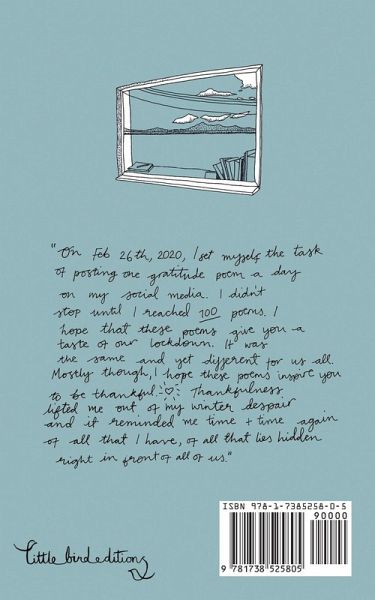 "On Feb 26th, 2020, I set myself the task
of posting one gratitude poem a day
on my social media. I didn't
stop until I reached 100 poems. I
hope that these poems give you a
taste of our lockdown. It was
the same and yet different for us all.
Mostly though, I hope these poems inspire you
to be thankful. ♡ Thankfulness
lifted me out of my winter despair
and it reminded me time + time again
of all that I have, of all that lies hidden
right in front of all of us."
ISBN 978-1-7385258-0-5
90000
9 781738 525805
little bird editions